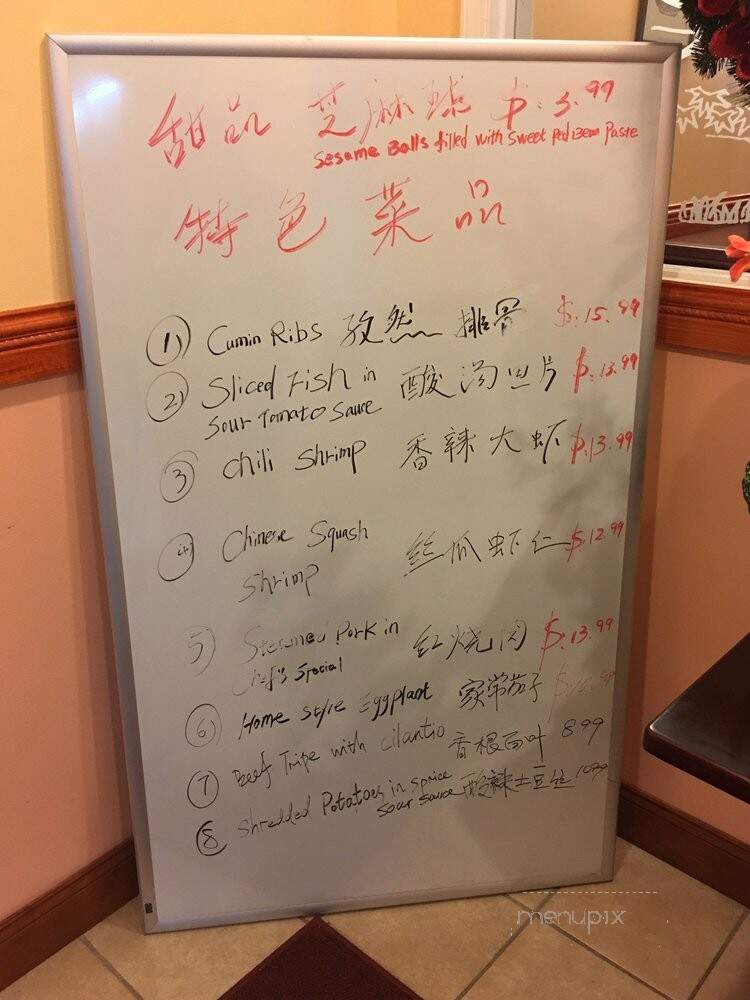 甜品 芝麻球 $:3.99
Sesame Balls filled with Sweet Red Bean Paste
特色菜品
1) Cumin Ribs 孜然 排骨 $:15.99
2) Sliced Fish in 酸汤鱼片 $:13.99
Sour Tomato Sauce
3 Chili Shrimp 香辣大虾 $:13.99
4) Chinese Squash
Shrimp 丝瓜虾仁 $:12.99
5) Steamed Pork in 红烧肉 $:13.99
Chef's Special
6) Home Style Eggplant 家常茄子
7 Beef Tripe with cilantro 香根百叶 8.99
8 Shredded Potatoes in spice 酸辣土豆丝 10.99
Sour Sauce
menupix